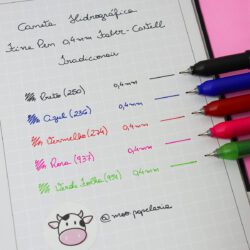 Caneta Hidrográfica
Fine Pen 0,4mm Faber-Castell
Tradicionais
Preto (250) 0,4mm
Azul (236) 0,4mm
Vermelho (274) 0,4mm
Rosa (937) 0,4mm
Verde Folha (954) 0,4mm
@moo.papelaria